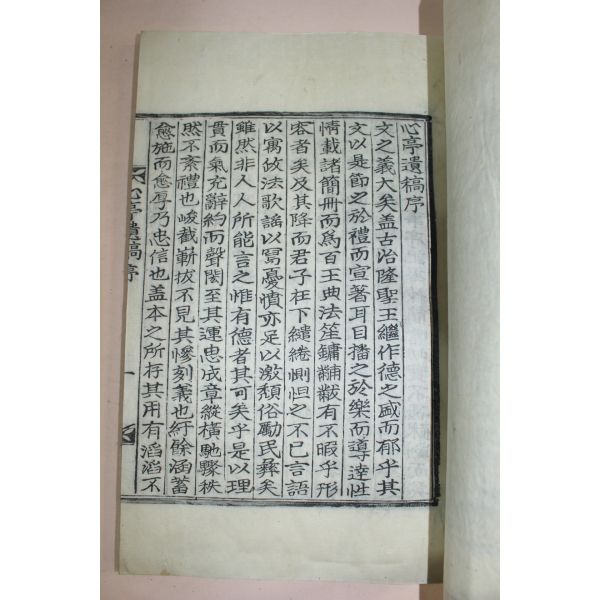 心亭遺稿序
文之義大矣盖古治隆聖王繼作德之盛而郁乎其
文以是節之於禮而宣著耳目播之於樂而導達性
情載諸簡冊而爲百王典法笙鏞黼黻有不暇乎形
容者矣及其降而君子在下繾綣惻怛之不已言語
以寓攸法歌謠以冩憂憤亦足以激頹俗勵民彝矣
雖然非人人所能言之惟有德者其可矣乎是以理
貴而氣充辭約而聲閎至其運思成章縱橫馳驟秩
然不紊禮也峻截嶄拔不見其慘刻義也紆餘涵蓄
愈施而愈厚乃忠信也盖本之所存其用有滔滔不
心亭遺稿序
一